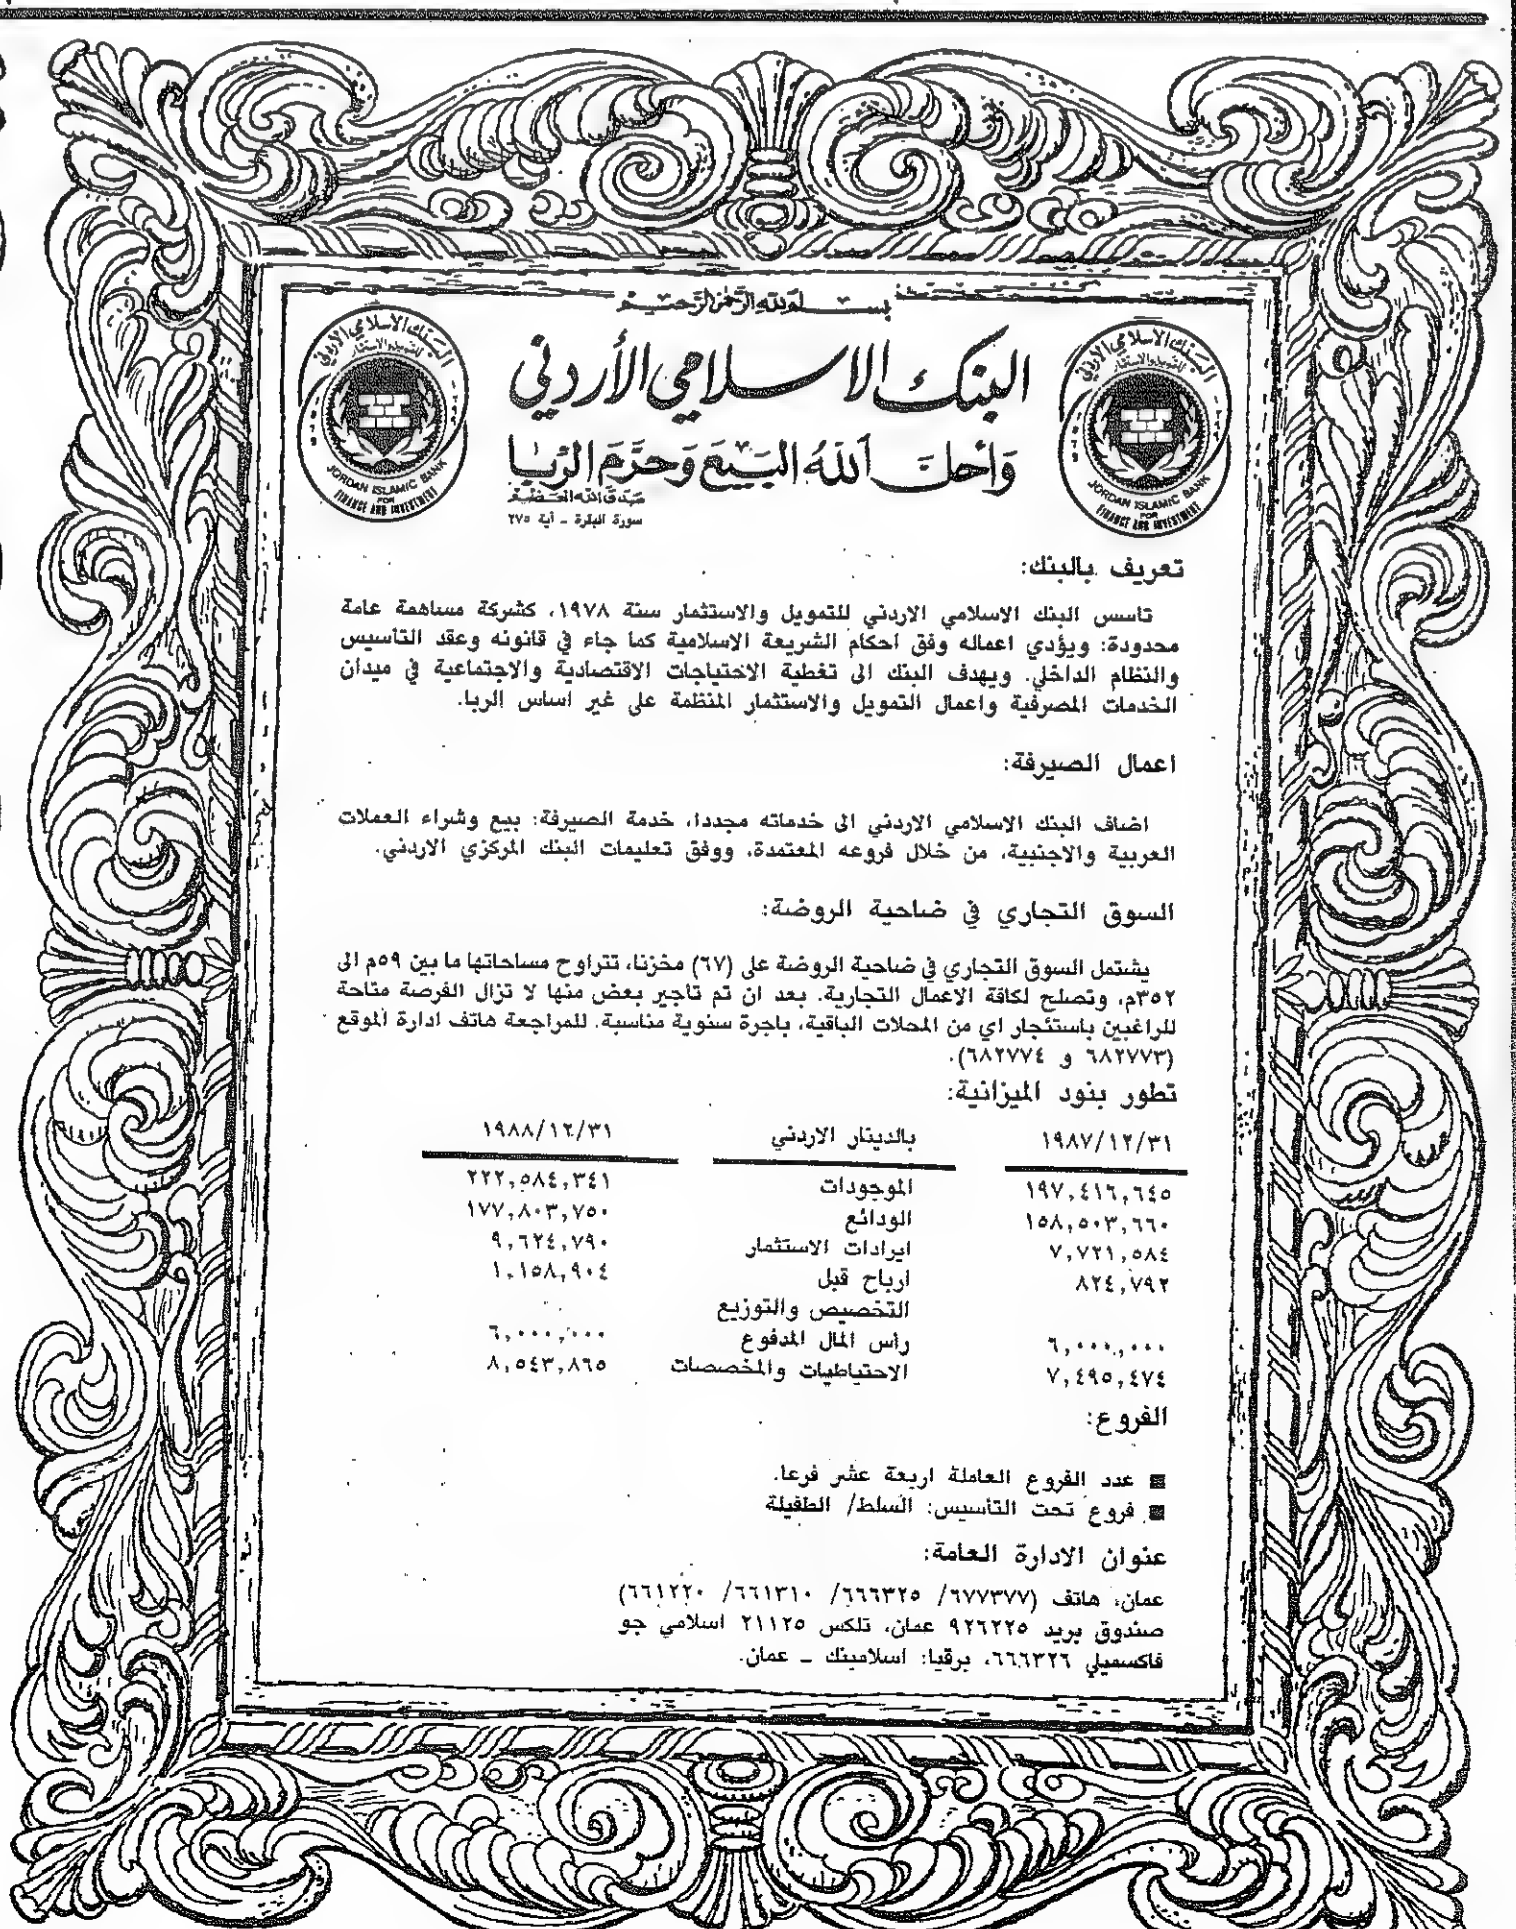 بسم الله الرحمن الرحيم
البنك الاسلامي الأردني
وَأحَلَّ اللهُ البَيعَ وَحرَّمَ الرّبا
صدق الله العظيم
سورة البقرة ـ آية ٢٧٥
البنك الاسلامي الأردني
للتمويل والاستثمار
JORDAN ISLAMIC BANK
FOR
FINANCE AND INVESTMENT
البنك الاسلامي الأردني
للتمويل والاستثمار
JORDAN ISLAMIC BANK
FOR
FINANCE AND INVESTMENT
تعريف بالبنك:
تأسس البنك الاسلامي الاردني للتمويل والاستثمار سنة ١٩٧٨، كشركة مساهمة عامة
محدودة: ويؤدي اعماله وفق احكام الشريعة الاسلامية كما جاء في قانونه وعقد التأسيس
والنظام الداخلي. ويهدف البنك الى تغطية الاحتياجات الاقتصادية والاجتماعية في ميدان
الخدمات المصرفية واعمال التمويل والاستثمار المنظمة على غير اساس الربا.
اعمال الصيرفة:
اضاف البنك الاسلامي الاردني الى خدماته مجددا، خدمة الصيرفة: بيع وشراء العملات
العربية والاجنبية، من خلال فروعه المعتمدة، ووفق تعليمات البنك المركزي الاردني.
السوق التجاري في ضاحية الروضة:
يشتمل السوق التجاري في ضاحية الروضة على (٦٧) مخزنا، تتراوح مساحاتها ما بين ٥٩م الى
٣٥٢م، وتصلح لكافة الاعمال التجارية. بعد ان تم تأجير بعض منها لا تزال الفرصة متاحة
للراغبين باستئجار اي من المحلات الباقية، باجرة سنوية مناسبة. للمراجعة هاتف ادارة الموقع
(٦٨٢٧٧٣ و ٦٨٢٧٧٤).
تطور بنود الميزانية:
١٩٨٧/١٢/٣١ بالدينار الاردني ١٩٨٨/١٢/٣١
١٩٧,٤١٦,٦٤٥ الموجودات ٢٢٢,٥٨٤,٣٤١
١٥٨,٥٠٣,٦٦٠ الودائع ١٧٧,٨٠٣,٧٥٠
٧,٧٢١,٥٨٤ ايرادات الاستثمار ٩,٦٢٤,٧٩٠
٨٢٤,٧٩٢ ارباح قبل ١,١٥٨,٩٠٤
التخصيص والتوزيع
٦,٠٠٠,٠٠٠ رأس المال المدفوع ٦,٠٠٠,٠٠٠
٧,٤٩٥,٤٧٤ الاحتياطيات والمخصصات ٨,٥٤٣,٨٦٥
الفروع:
■ عدد الفروع العاملة اربعة عشر فرعا.
■ فروع تحت التأسيس: السلط/ الطفيلة
عنوان الادارة العامة:
عمان، هاتف (٦٧٧٣٧٧/ ٦٦٦٣٢٥/ ٦٦١٣١٠/ ٦٦١٢٢٠)
صندوق بريد ٩٢٦٢٢٥ عمان، تلكس ٢١١٢٥ اسلامي جو
فاكسميلي ٦٦٦٣٢٦، برقيا: اسلامبنك ـ عمان.